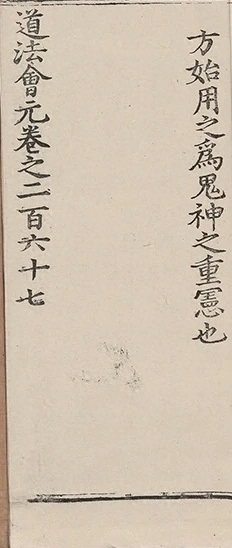 方始用之爲鬼神之重憲也
道法會元卷之二百六十七